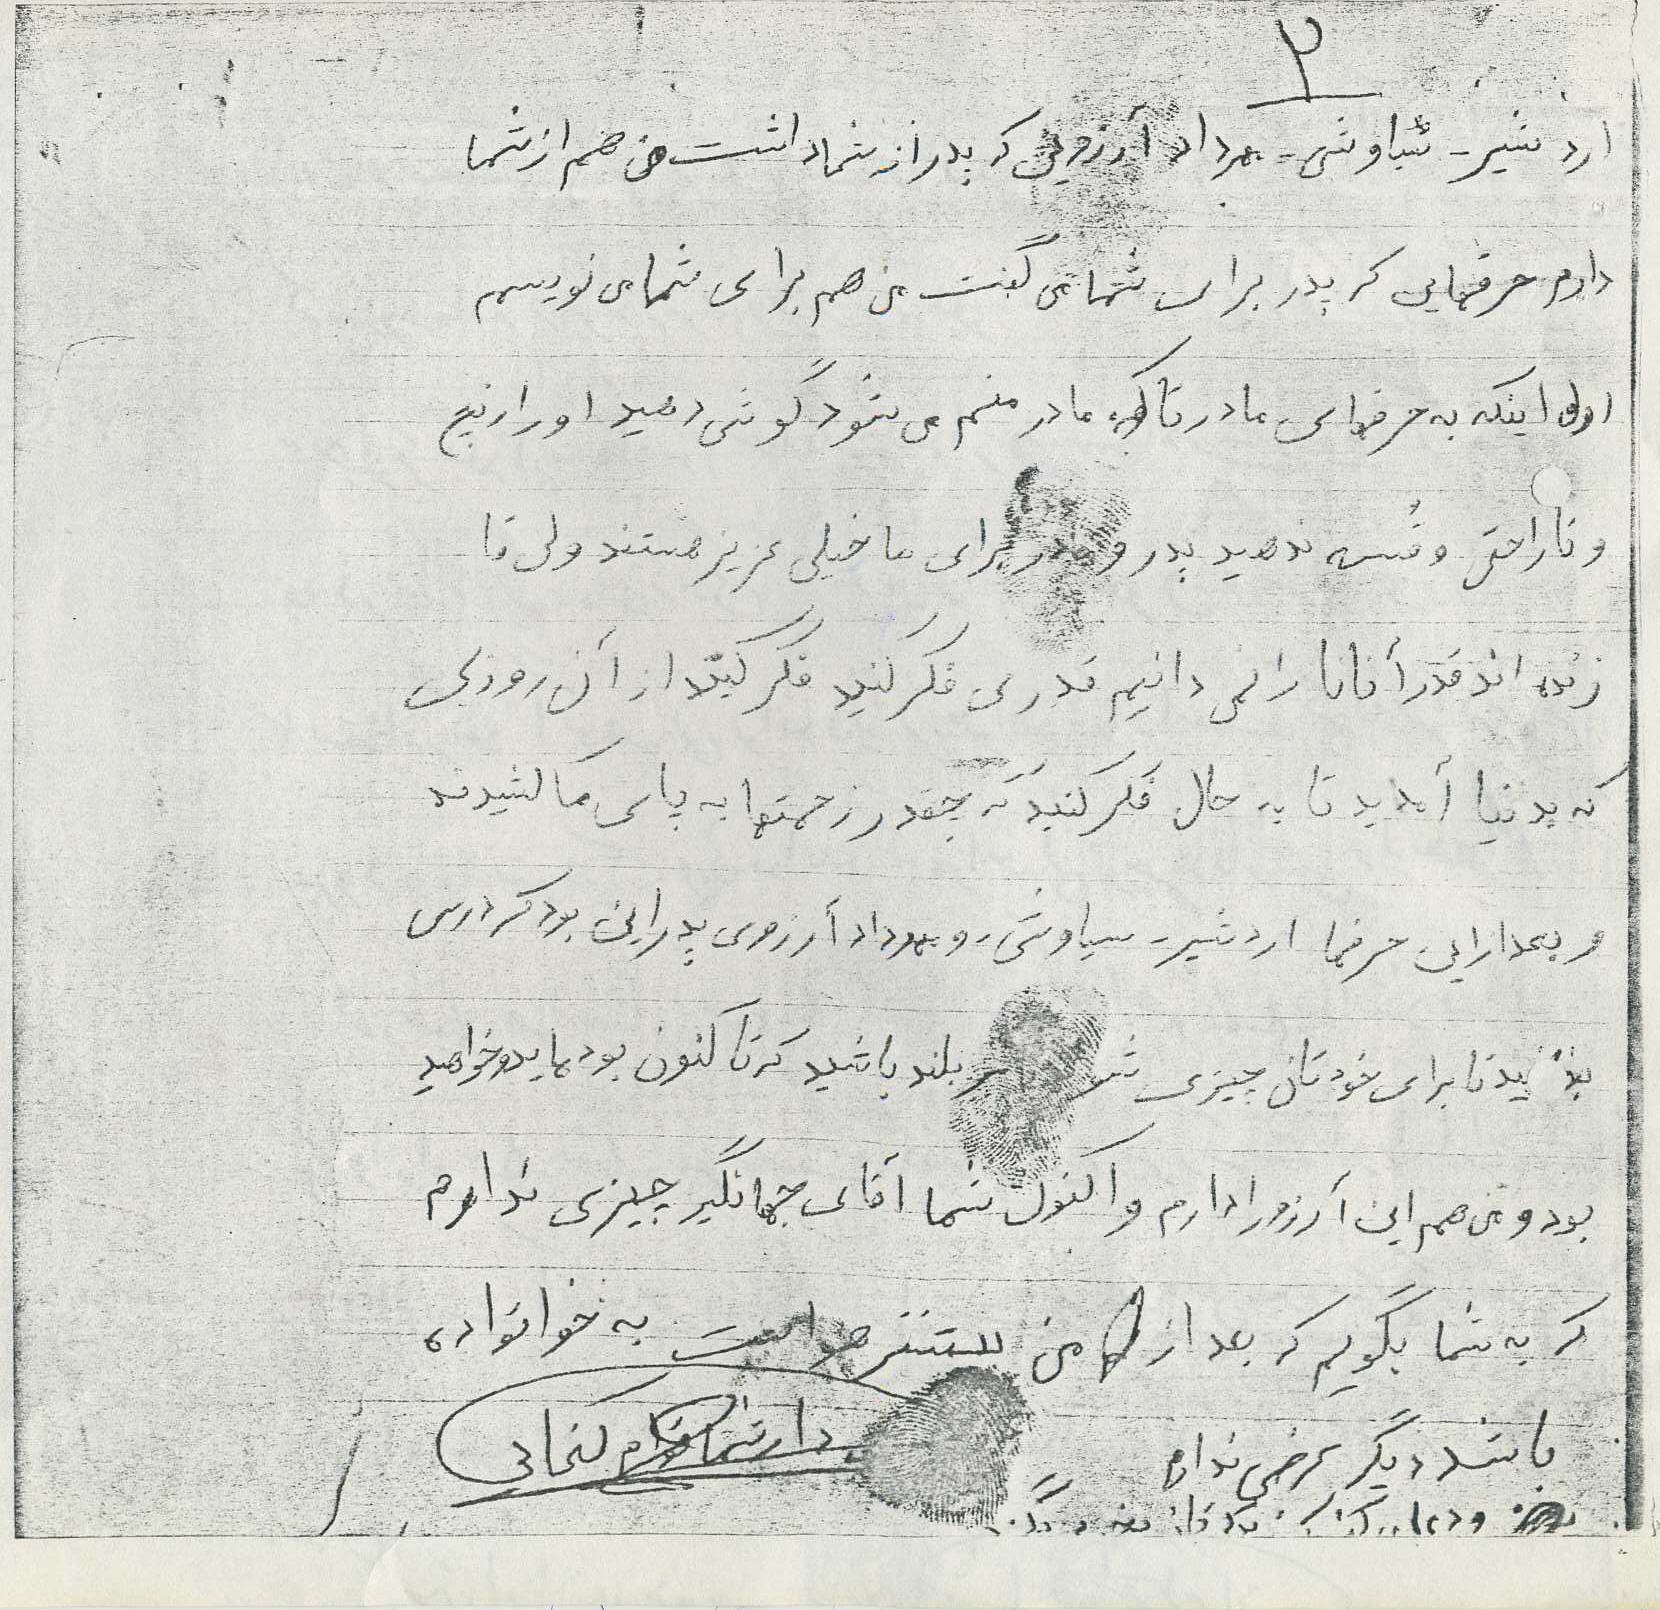 ۲
اردشیر - سیاوش - مهرداد آرزویی که پدر از شما داشت من هم از شما
دارم حرفهایی که پدر برای شما می گفت من هم برای شما می نویسم
اول اینکه به حرفهای مادرتان که مادر منهم می شود گوش دهید او را رنج
و ناراحتی و غصه ندهید پدر و مادر برای ما خیلی عزیز هستند ولی تا
زنده اند قدر آنانا را نمی دانیم قدری فکر کنید فکر کنید از آن روزی
که بدنیا آمدید تا به حال فکر کنید که چقدر زحمتها به پای ما کشیدند
و بعد از این حرفها اردشیر - سیاوش - و مهرداد آرزوی پدر این بود که درس
بخوانید تا برای خودتان چیزی سربلند باشید که تا کنون بوده اید و خواهید
بود و من هم این آرزو را دارم و اکنون شما آقای جهانگیر چیزی ندارم
که به شما بگویم که بعد از من به خوانواده
باشد دیگر عرضی ندارم